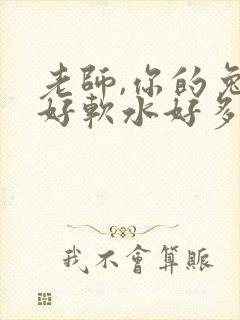 老師,你的兔
好軟水好多
我不會算賬